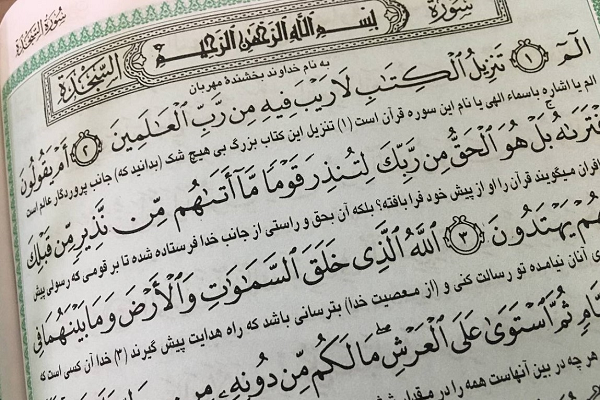 سُورَةُ السَّجْدَةِ
سُورَةُ
السَّجْدَةِ
بِسْمِ اللَّهِ الرَّحْمَٰنِ الرَّحِيمِ
به نام خداوند بخشندهٔ مهربان
الٓمٓ ١ تَنزِيلُ ٱلْكِتَٰبِ لَا رَيْبَ فِيهِ مِن رَّبِّ ٱلْعَٰلَمِينَ ٢ أَمْ يَقُولُونَ
الم یا اشاره باسماء الهی یا نام این سوره قرآن است (۱) تنزیل این کتاب بزرگ بی هیچ شک (بدانید که) جانب پروردگار عالم است
ٱفْتَرَىٰهُ بَلْ هُوَ ٱلْحَقُّ مِن رَّبِّكَ لِتُنذِرَ قَوْمًا مَّآ أَتَىٰهُم مِّن نَّذِيرٍ مِّن قَبْلِكَ
کافران میگویند قرآن را او از پیش خود فرا بافته؟ بلکه آن بحق و راستی از جانب خدا فرستاده شده تا بر قومی که رسولی پیش
هُمْ يَهْتَدُونَ ٣ ٱللَّهُ ٱلَّذِى خَلَقَ ٱلسَّمَٰوَٰتِ وَٱلْأَرْضَ وَمَا بَيْنَهُمَا فِى
آنان نیامده تو رسالت کنی و (از معصیت خدا) بترسانی باشد که راه هدایت پیش گیرند (۳) خدا آن کسی است که
ثُمَّ ٱسْتَوَىٰ عَلَى ٱلْعَرْشِ مَا لَكُم مِّن دُونِهِۦ مِن
هر چه در بین آنهاست همه را در مقدار